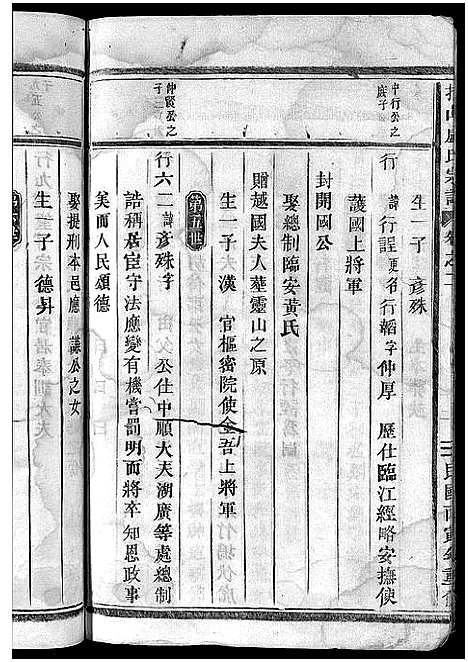 生一子 彥殊
中行公之
底子
行
諱行諲更名行韜字仲厚 歷仕臨江經略安撫使
護國上將軍
封開國公
娶總制臨安黃氏
贈越國夫人葬靈山之原
生一子漢 官樞密院使金吾上將軍
第五世
仲賢公之
子
行六二諱彥殊字 公仕中順大夫湖廣等處總制
誥稱蒞宦守法應變有機嘗罰明而將卒知恩政事
矣而人民頌德
娶提刑本邑應 謙公之女
生一子德昇